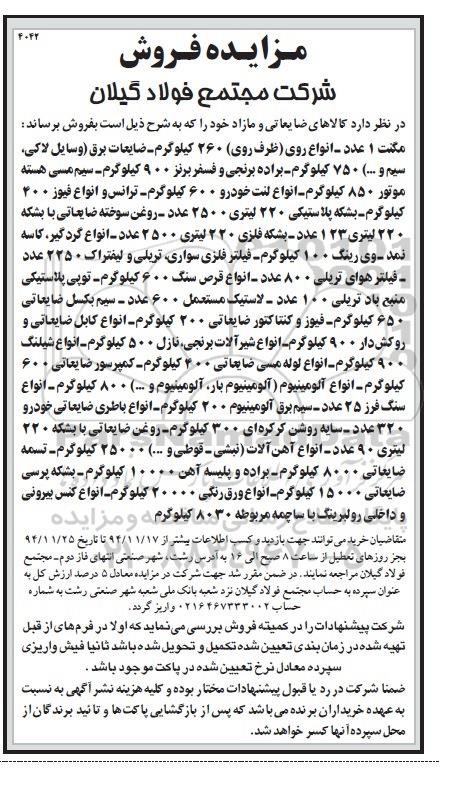 ۴۰۴۲
مـزایـده فـروش
شرکت مجتمع فولاد گیلان
در نظر دارد کالاهای ضایعاتی و مازاد خود را که به شرح ذیل است بفروش برساند:
مگنت ۱ عدد ـ انواع روی (ظرف روی) ۲۶۰ کیلوگرم ـ ضایعات برق (وسایل لاکی،
سیم و ...) ۷۵۰ کیلوگرم ـ براده برنجی و فسفر برنز ۹۰۰ کیلوگرم ـ سیم مسی هسته
موتور ۸۵۰ کیلوگرم ـ انواع لنت خودرو ۶۰۰ کیلوگرم ـ ترانس و انواع فیوز ۴۰۰
کیلوگرم ـ بشکه پلاستیکی ۲۲۰ لیتری ۲۵۰۰ عدد ـ روغن سوخته ضایعاتی با بشکه
۲۲۰ لیتری ۱۲۳ عدد ـ بشکه فلزی ۲۲۰ لیتری ۲۵۰۰ عدد ـ انواع گردگیر، کاسه
نمد ـ وی رینگ ۱۰۰ کیلوگرم ـ فیلتر فلزی سواری، تریلی و لیفتراک ۲۲۵۰ عدد
ـ فیلتر هوای تریلی ۸۰۰ عدد ـ انواع قرص سنگ ۶۰۰ کیلوگرم ـ توپی پلاستیکی
منبع باد تریلی ۱۰۰ عدد ـ لاستیک مستعمل ۶۰۰ عدد ـ سیم بکسل ضایعاتی
۶۵۰۰ کیلوگرم ـ فیوز و کنتاکتور ضایعاتی ۲۰۰ کیلوگرم ـ انواع کابل ضایعاتی و
روکش دار ۹۰۰ کیلوگرم ـ انواع شیرآلات برنجی، نازل ۵۰۰ کیلوگرم ـ انواع شیلنگ
۹۰۰ کیلوگرم ـ انواع لوله مسی ضایعاتی ۴۰۰ کیلوگرم ـ کمپرسور ضایعاتی ۶۰۰
کیلوگرم ـ انواع آلومینیوم (آلومینیوم بار، آلومینیوم و ...) ۸۰۰ کیلوگرم ـ انواع
سنگ فرز ۲۵ عدد ـ سیم برق آلومینیوم ۲۰۰ کیلوگرم ـ انواع باطری ضایعاتی خودرو
۳۲۰ عدد ـ سایه روشن کرکره ای ۳۰۰ کیلوگرم ـ روغن ضایعاتی با بشکه ۲۲۰
لیتری ۹۰ عدد ـ انواع آهن آلات (نبشی ـ قوطی و ...) ۲۵۰۰۰ کیلوگرم ـ تسمه
ضایعاتی ۸۰۰۰ کیلوگرم ـ براده و پلیسه آهن ۱۰۰۰۰ کیلوگرم ـ بشکه پرسی
ضایعاتی ۱۵۰۰۰ کیلوگرم ـ انواع ورق رنگی ۲۰۰۰۰ کیلوگرم ـ انواع کنس بیرونی
و داخلی رولبرینگ با ساچمه مربوطه ۸۰۳۰ کیلوگرم
متقاضیان خرید می توانند جهت بازدید و کسب اطلاعات بیشتر از ۹۴/۱۱/۱۷ تا تاریخ ۹۴/۱۱/۲۵
بجز روزهای تعطیل از ساعت ۸ صبح الی ۱۶ به آدرس رشت، شهر صنعتی انتهای فاز دوم ـ مجتمع
فولاد گیلان مراجعه نمایند. در ضمن مقرر شد جهت شرکت در مزایده معادل ۵ درصد ارزش کل به
عنوان سپرده به حساب مجتمع فولاد گیلان نزد شعبه بانک ملی شعبه شهر صنعتی رشت به شماره
حساب ۰۲۱۶۴۶۷۳۳۳۰۰۲ واریز گردد.
شرکت پیشنهادات را در کمیته فروش بررسی می نماید که اولا در فرم های از قبل
تهیه شده در زمان بندی تعیین شده تکمیل و تحویل شده باشد ثانیا فیش واریزی
سپرده معادل نرخ تعیین شده در پاکت موجود باشد.
ضمنا شرکت در رد یا قبول پیشنهادات مختار بوده و کلیه هزینه نشر آگهی به نسبت
به عهده خریداران برنده می باشد که پس از بازگشایی پاکت ها و تائید برندگان از
محل سپرده آنها کسر خواهد شد.